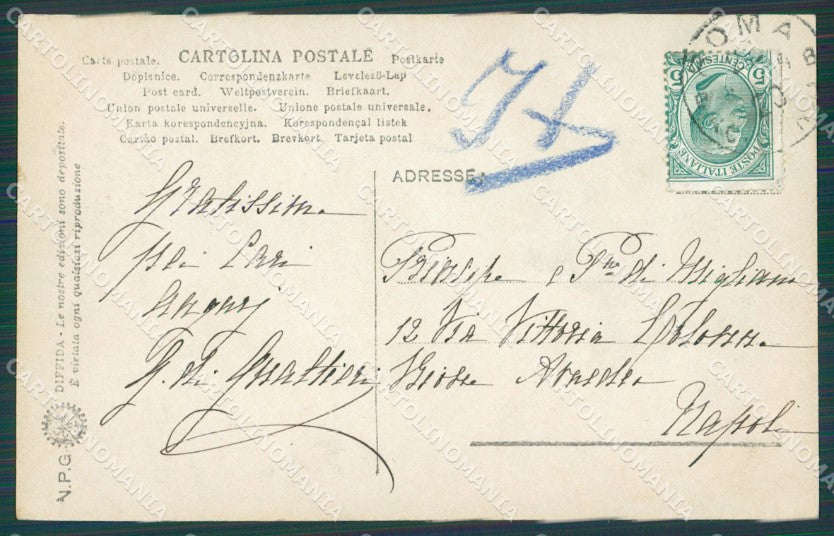 Carte postale. CARTOLINA POSTALE Postkarte
Dopisnice. Correspondenzkarte Levelező-Lap
Post card. Weltpostverein. Briefkaart.
Union postale universelle. Unione postale universale.
Karta korespondencyjna. Korespondençal listek
Cartão postal. Brefkort. Brevkort. Tarjeta postal
ADRESSE.
ROMA
POSTE ITALIANE
CENTESIMI
5 5
N.P.G. DIFFIDA - Le nostre edizioni sono depositate.
È vietata ogni qualsiasi riproduzione
Gratissimo
pei cari
auguri
G. di Gualtieri
Principe e Pssa di Migliano
12 Via Vittoria Colonna
Rione Amedeo
Napoli
CARTOLINOMANIA